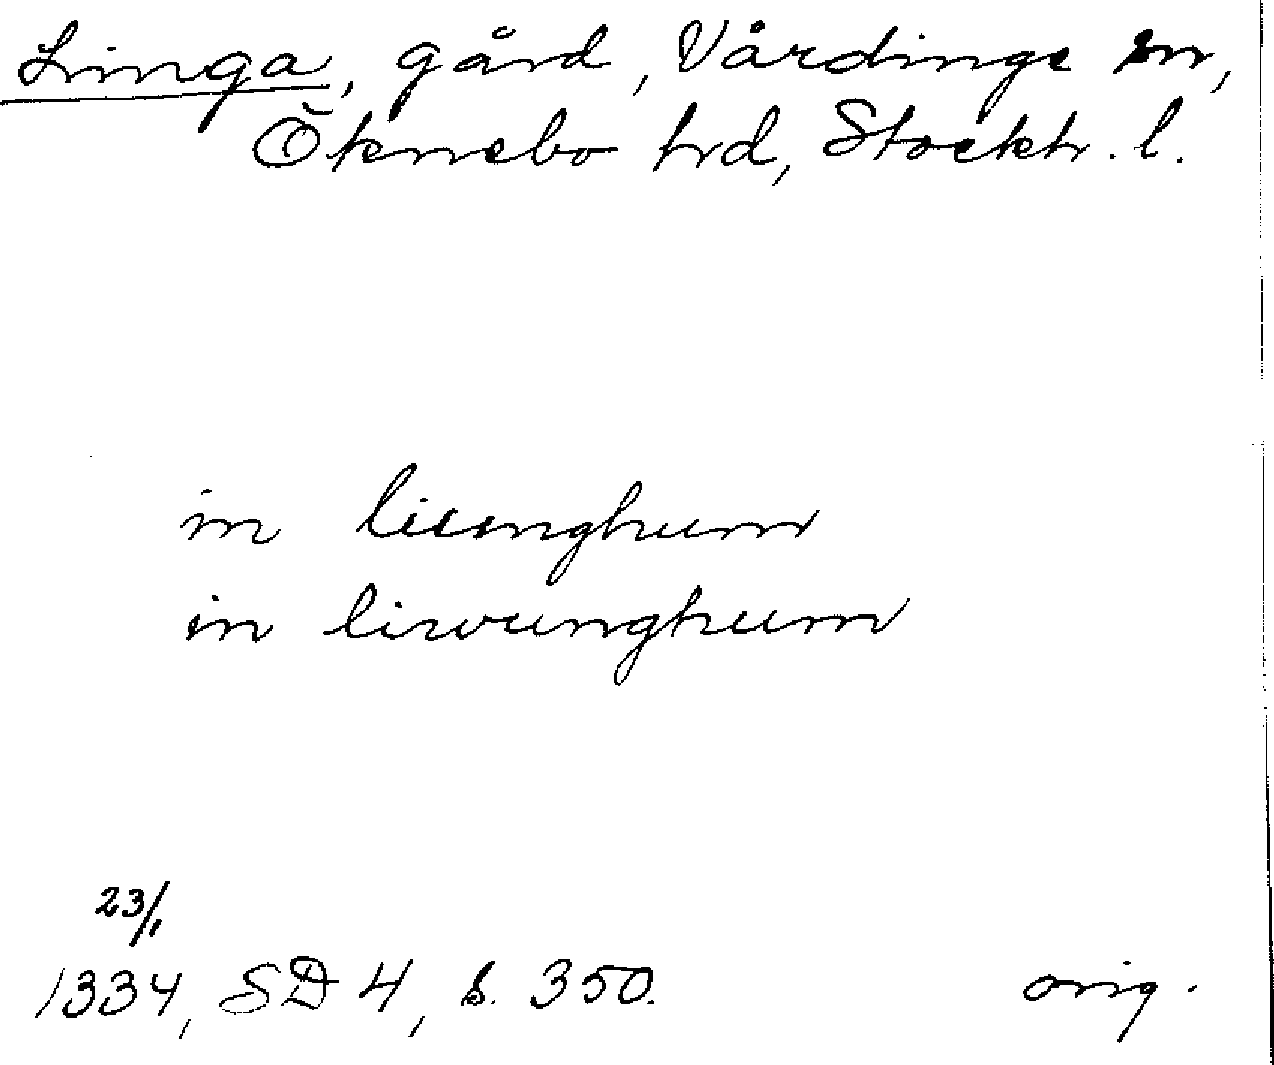 Linga, gård, Vårdinge sn,
Öknebo hrd, Stockh. l.
in liunghum
in liwunghum
23/1
1334, SD 4, s. 350.
orig.